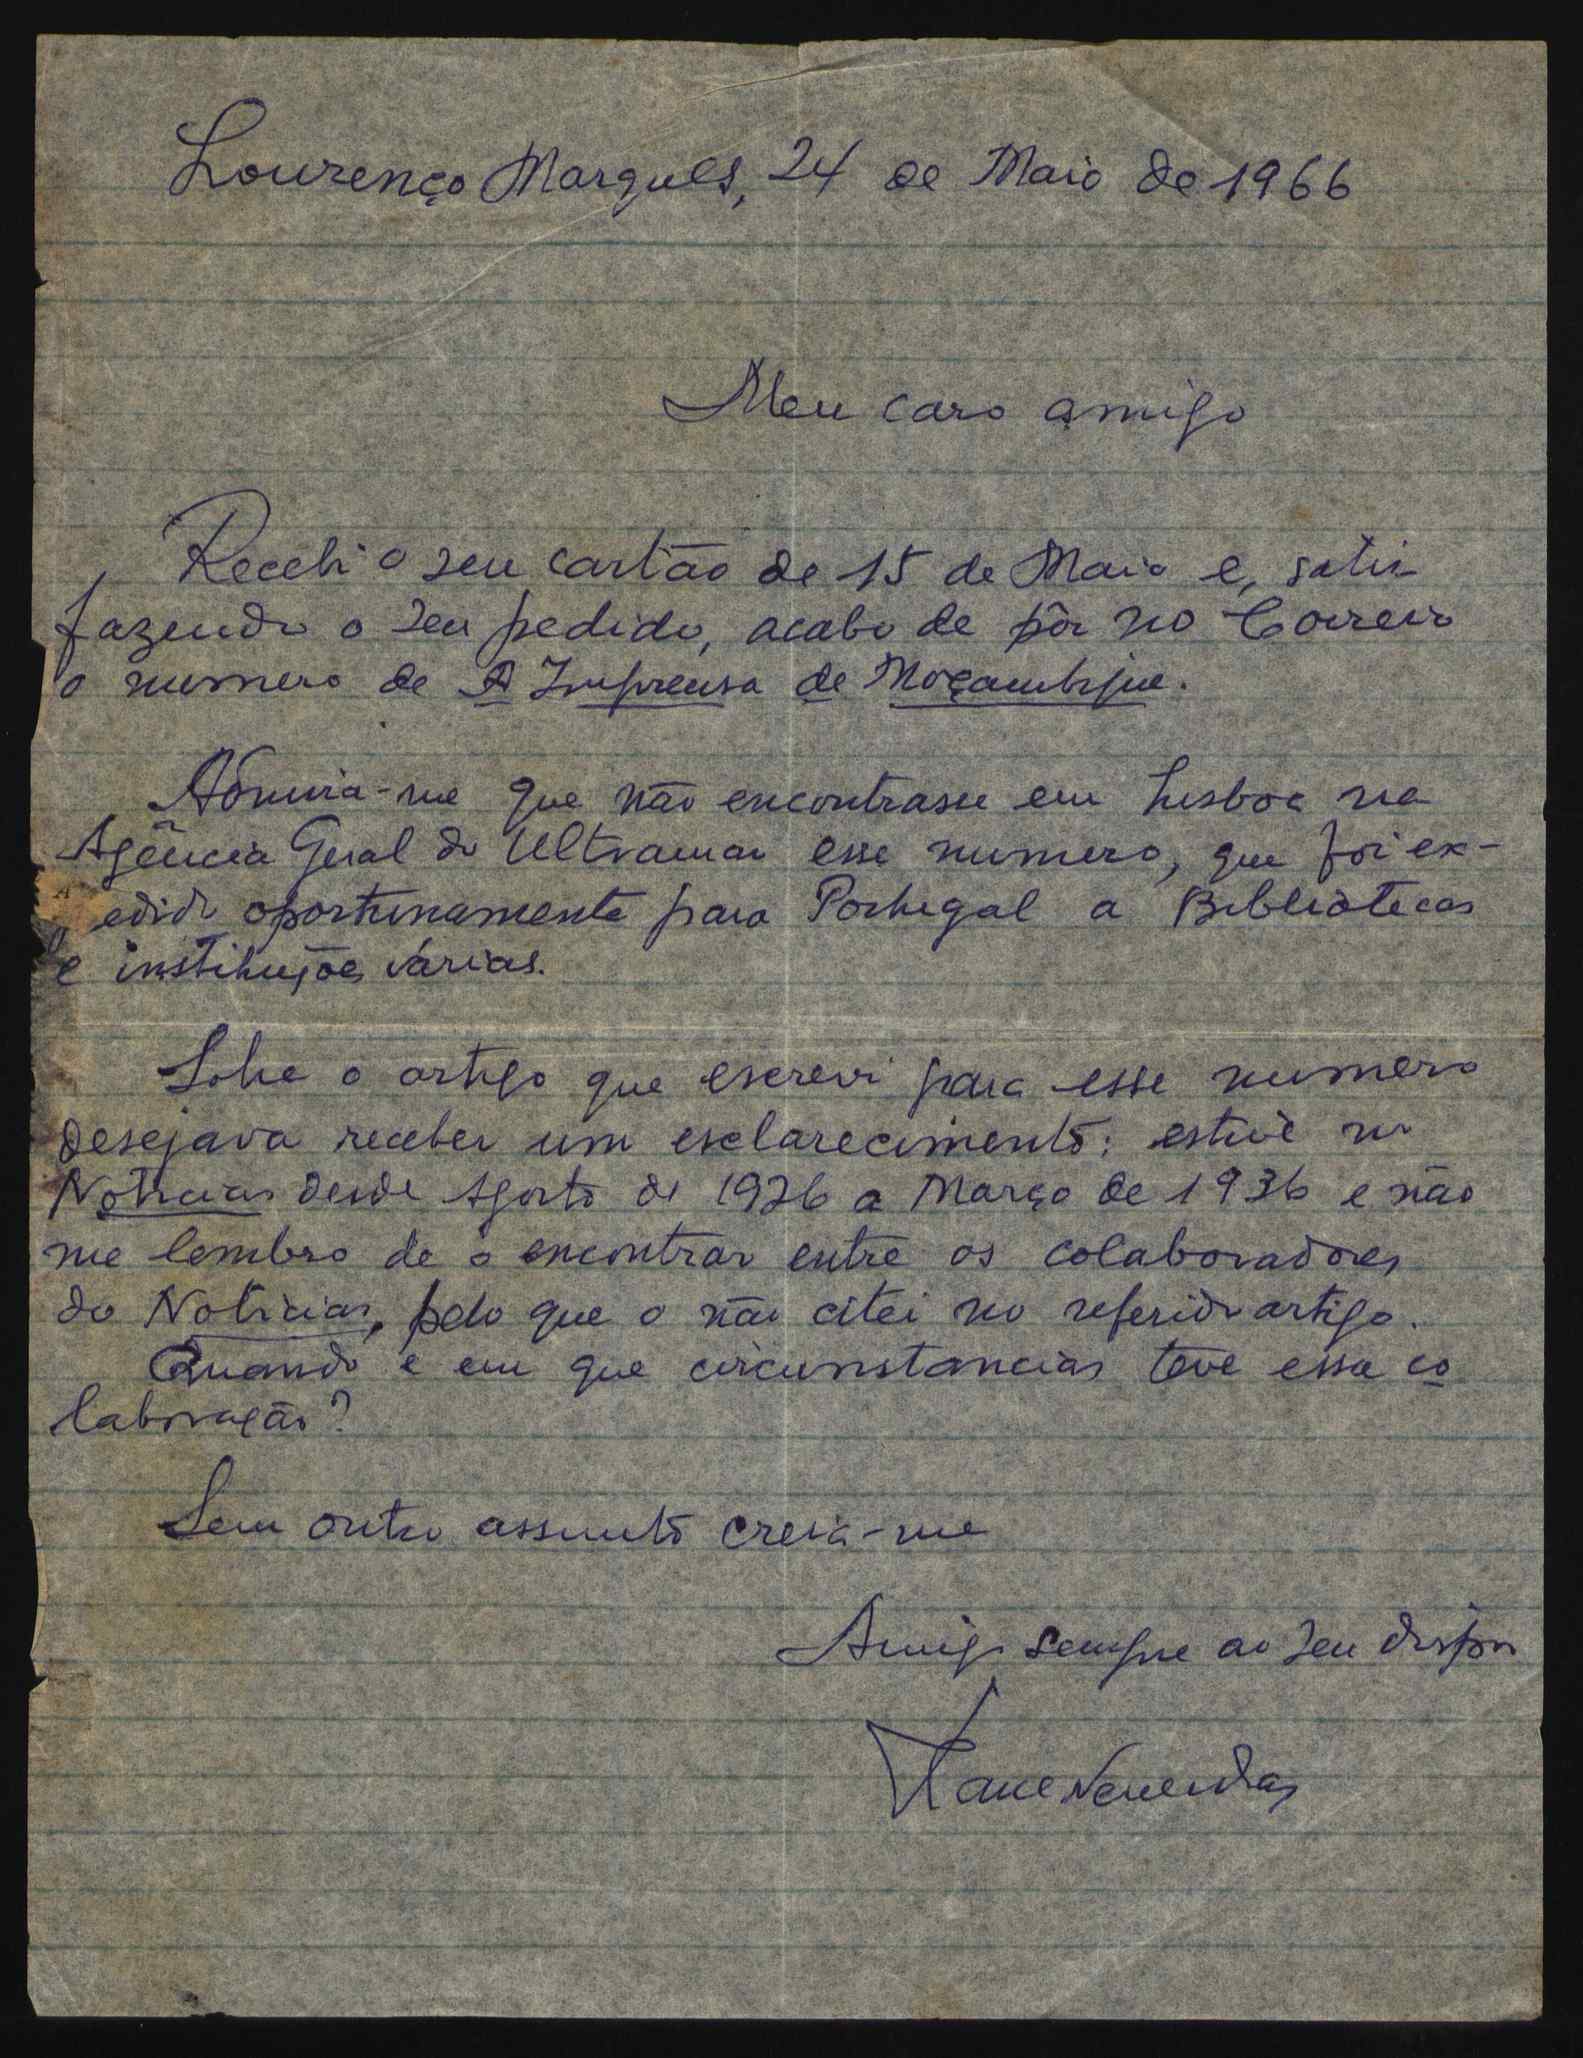 Lourenço Marques, 24 de Maio de 1966
Meu caro amigo
Recebi o seu cartão de 15 de Maio e, satis-
fazendo o seu pedido, acabo de pôr no Correio
o numero de A Imprensa de Moçambique.
Admira-me que não encontrasse em Lisboa na
Agência Geral do Ultramar esse numero, que foi ex-
pedido oportunamente para Portugal a Bibliotecas
e instituições várias.
Sobre o artigo que escrevi para esse numero
desejava receber um esclarecimento: estive no
Noticias desde Agosto de 1926 a Março de 1936 e não
me lembro de o encontrar entre os colaboradores
do Noticias, pelo que o não citei no referido artigo.
Quando e em que circunstancias teve essa co
laboração?
Sem outro assunto creia-me
Amigo sempre ao seu dispor